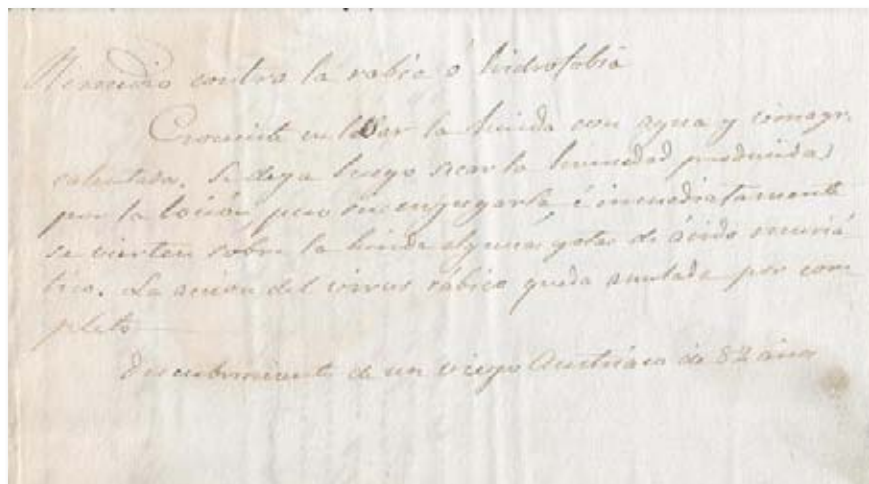 Remedio contra la rabia ó hidrofobia
Consiste en lavar la herida con agua y vinagre
calentada. Se deja luego secar la humedad producida
por la loción, pero sin enjugarla é inmediatamente
se vierten sobre la herida algunas gotas de ácido muriá-
tico. La acción del virus rábico queda anulada por com
pleto
Descubrimiento de un viejo Austriaco de 82 años